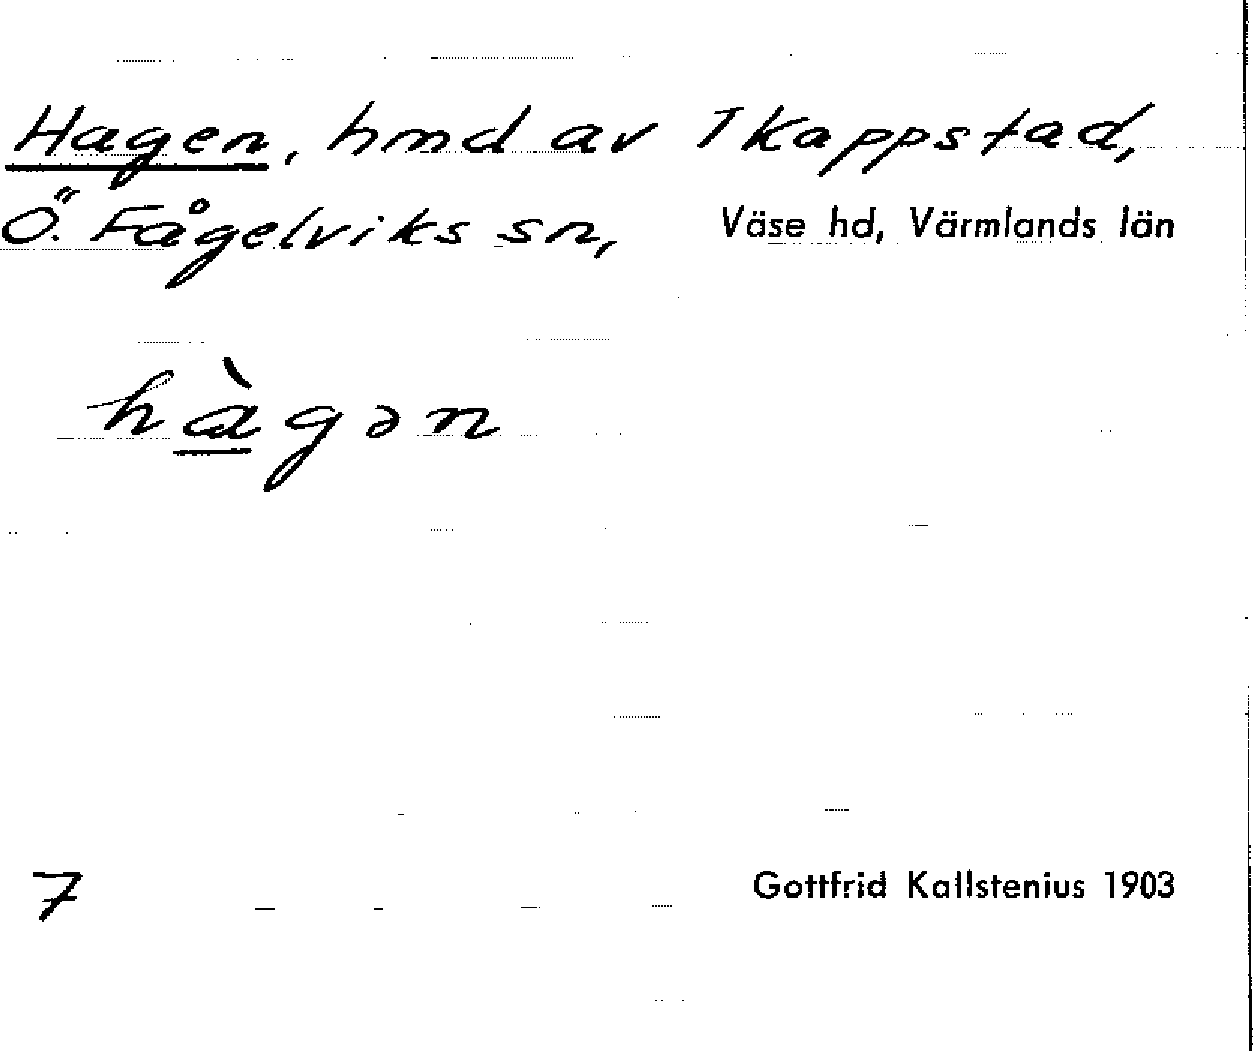 Hagen, hmd av 1 Kappstad,
Ö. Fågelviks sn, Väse hd, Värmlands län
hàgən
7 Gottfrid Kallstenius 1903